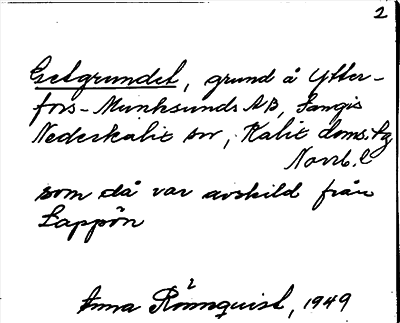 2
Getgrundet, grund å Ytter-
fors-Munksunds AB, Sangis
Nederkalix sn, Kalix doms.tg
Norrb. l
som då var avskild från
Lappön
Anna Rönnquist, 1949